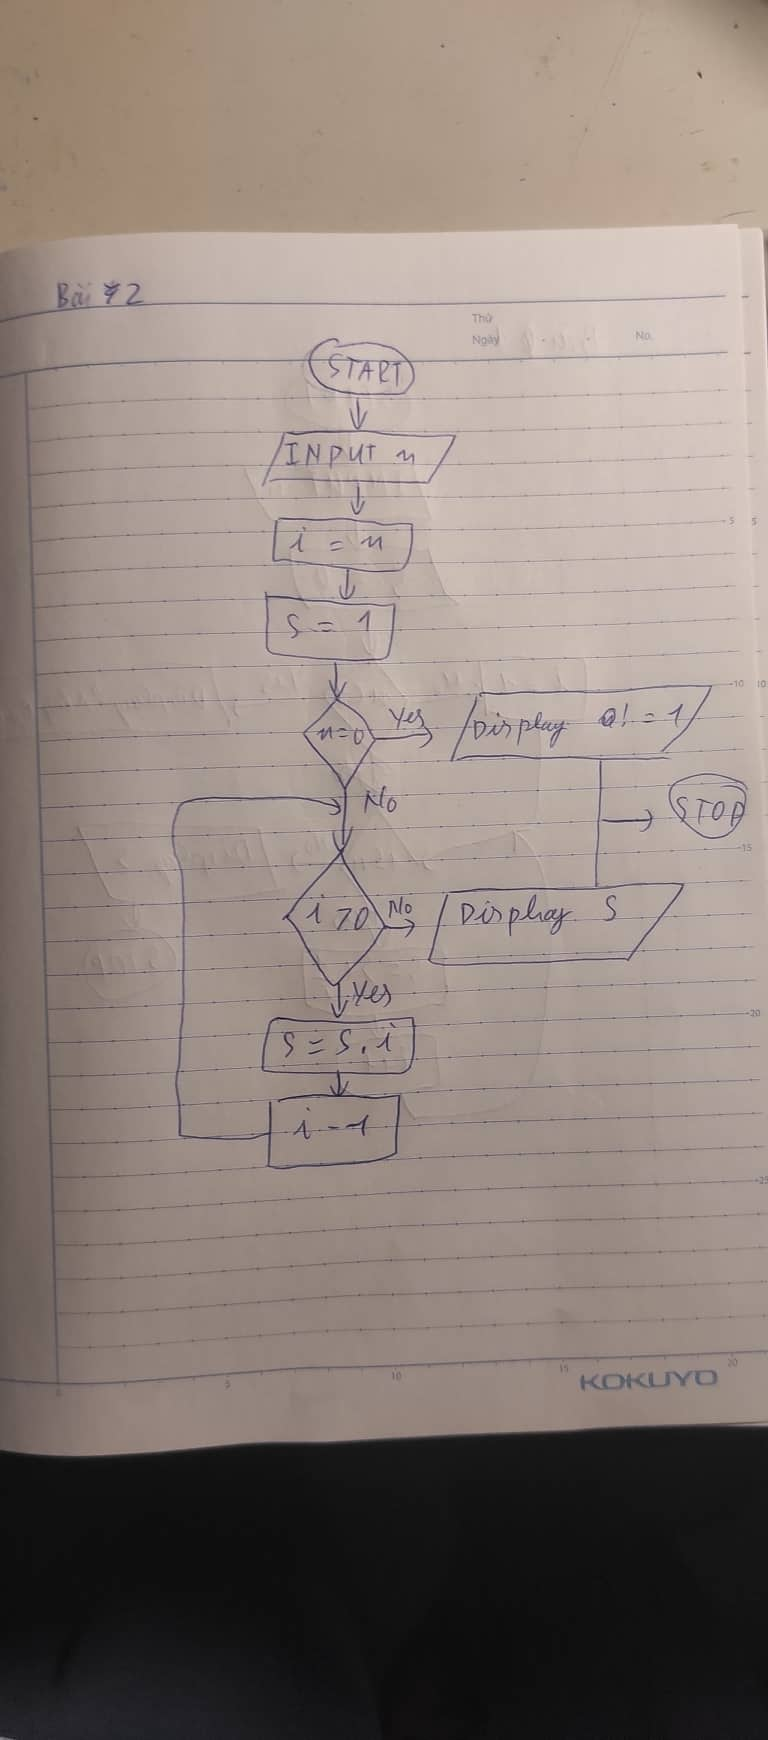 Bài 2
Thứ
Ngày
No.
START
INPUT n
i = n
S = 1
n=0
Yes
Display 0! = 1
No
STOP
i >0
No
Display S
Yes
S = S . i
i - 1
5
5
10
10
15
20
25
5
10
15
20
KOKUYO